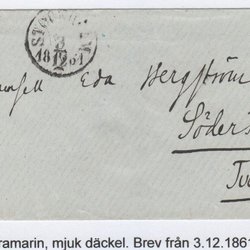 STOCKHOLM
3
12
1861
msell Eda Bergström
Söder
ramarin, mjuk däckel. Brev från 3.12.1861